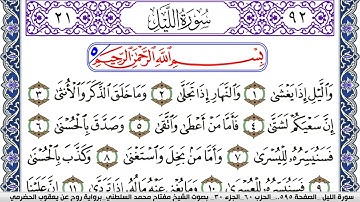 ٩٢ سُورَةُ اللَّيْلِ ٢١
بِسْمِ اللَّهِ الرَّحْمَٰنِ الرَّحِيمِ
وَاللَّيْلِ إِذَا يَغْشَىٰ ١ وَالنَّهَارِ إِذَا تَجَلَّىٰ ٢ وَمَا خَلَقَ الذَّكَرَ وَالْأُنثَىٰ ٣
إِنَّ سَعْيَكُمْ لَشَتَّىٰ ٤ فَأَمَّا مَنْ أَعْطَىٰ وَاتَّقَىٰ ٥ وَصَدَّقَ بِالْحُسْنَىٰ ٦
فَسَنُيَسِّرُهُ لِلْيُسْرَىٰ ٧ وَأَمَّا مَن بَخِلَ وَاسْتَغْنَىٰ ٨ وَكَذَّبَ بِالْحُسْنَىٰ
٩ فَسَنُيَسِّرُهُ لِلْعُسْرَىٰ ١٠ وَمَا يُغْنِي عَنْهُ مَالُهُ إِذَا تَرَدَّىٰ ١١ إِنَّ عَلَيْنَا
سورة الليل - الصفحة ٥٩٥ - الحزب ٦٠ - الجزء ٣٠ - بصوت الشيخ مفتاح محمد السلطني برواية روح عن يعقوب الحضرمي